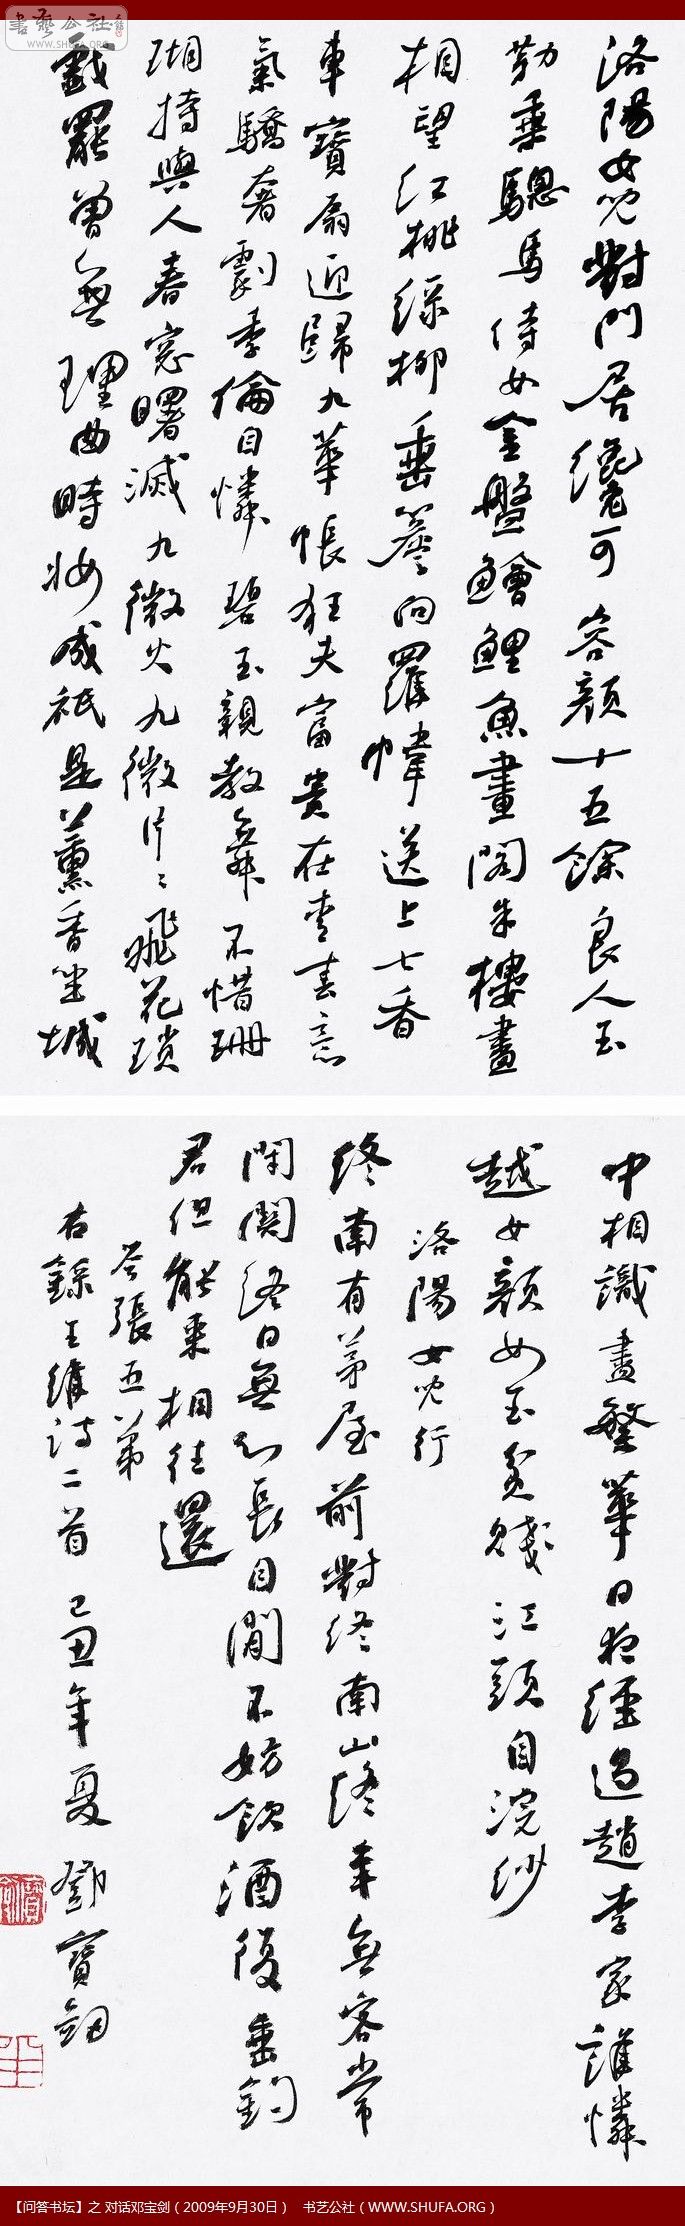 書藝公社
WWW.SHUFA.ORG
洛陽女兒對門居纔可容顏十五餘良人玉
勒乘驄馬侍女金盤鱠鯉魚畫閣朱樓盡
相望紅桃綠柳垂簷向羅幃送上七香
車寶扇迎歸九華帳狂夫富貴在青春意
氣驕奢劇季倫自憐碧玉親教舞不惜珊
瑚持與人春窓曙滅九微火九微片〻飛花瑣
戲罷曾無理曲時妝成祇是薰香坐城
中相識盡繁華日夜經過趙李家誰憐
越女顏如玉貧賤江頭自浣紗
洛陽女兒行
終南有茅屋前對終南山終年無客常
閉關終日無心長自閒不妨飲酒復垂釣
君但能來相往還
答張五弟
右錄王維詩二首 己丑年夏 鄧寶劍
【问答书坛】之 对话邓宝剑（2009年9月30日） 书艺公社（WWW.SHUFA.ORG）